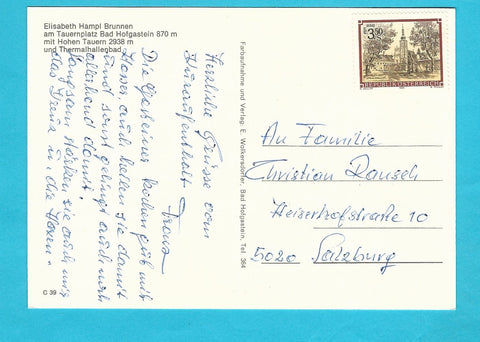 Elisabeth Hampl Brunnen
am Tauernplatz Bad Hofgastein 870 m
mit Hohen Tauern 2938 m
und Thermalhallenbad
Herzliche Grüsse vom
Kuraufenthalt Franz
Die Gasteiner kochen gut mit
Wasser, auch heilen sie damit
und sonst gelingt auch noch
allerhand damit.
Langsam stärken sie auch mir
das Kreuz u. die Haxen.
C 39
Farbaufnahme und Verlag: E. Wolkersdorfer, Bad Hofgastein, Tel. 364
S 3.50
REPUBLIK ÖSTERREICH
An Familie
Christian Rausch
Reiserhofstraße 10
5020 Salzburg